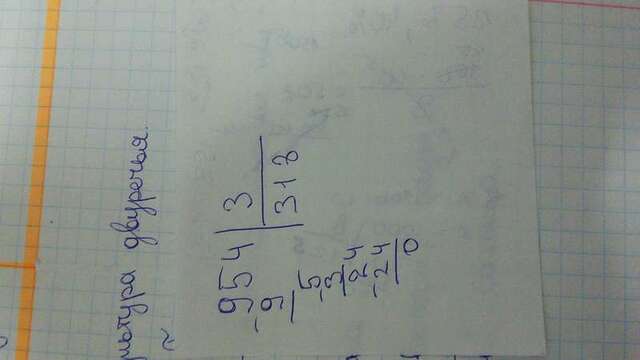 льтура двуречья.
954 | 3
-9 | 318
5
-3
24
-24
0